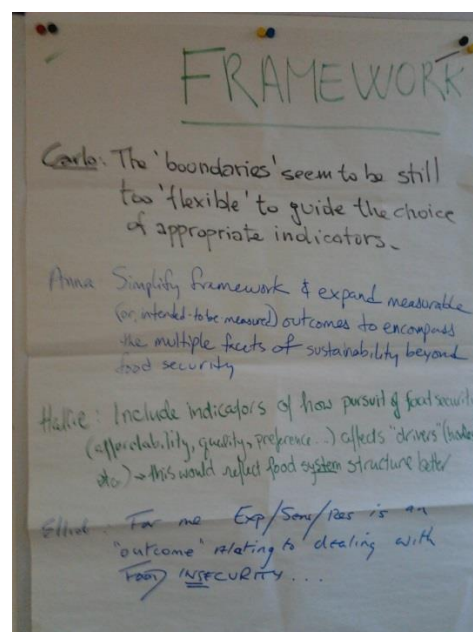 FRAMEWORK
Carlo: The 'boundaries' seem to be still
too 'flexible' to guide the choice
of appropriate indicators.
Anna: Simplify framework & expand measurable
(or, intended-to-be measured) outcomes to encompass
the multiple facets of sustainability beyond
food security
Hallie: Include indicators of how pursuit of food securit
(affordability, quality, preference...) affects "drivers"
etc.) → this would reflect food system structure better
: For me Exp/Sens/Res is an
"outcome" relating to dealing with
Food INSECURITY...